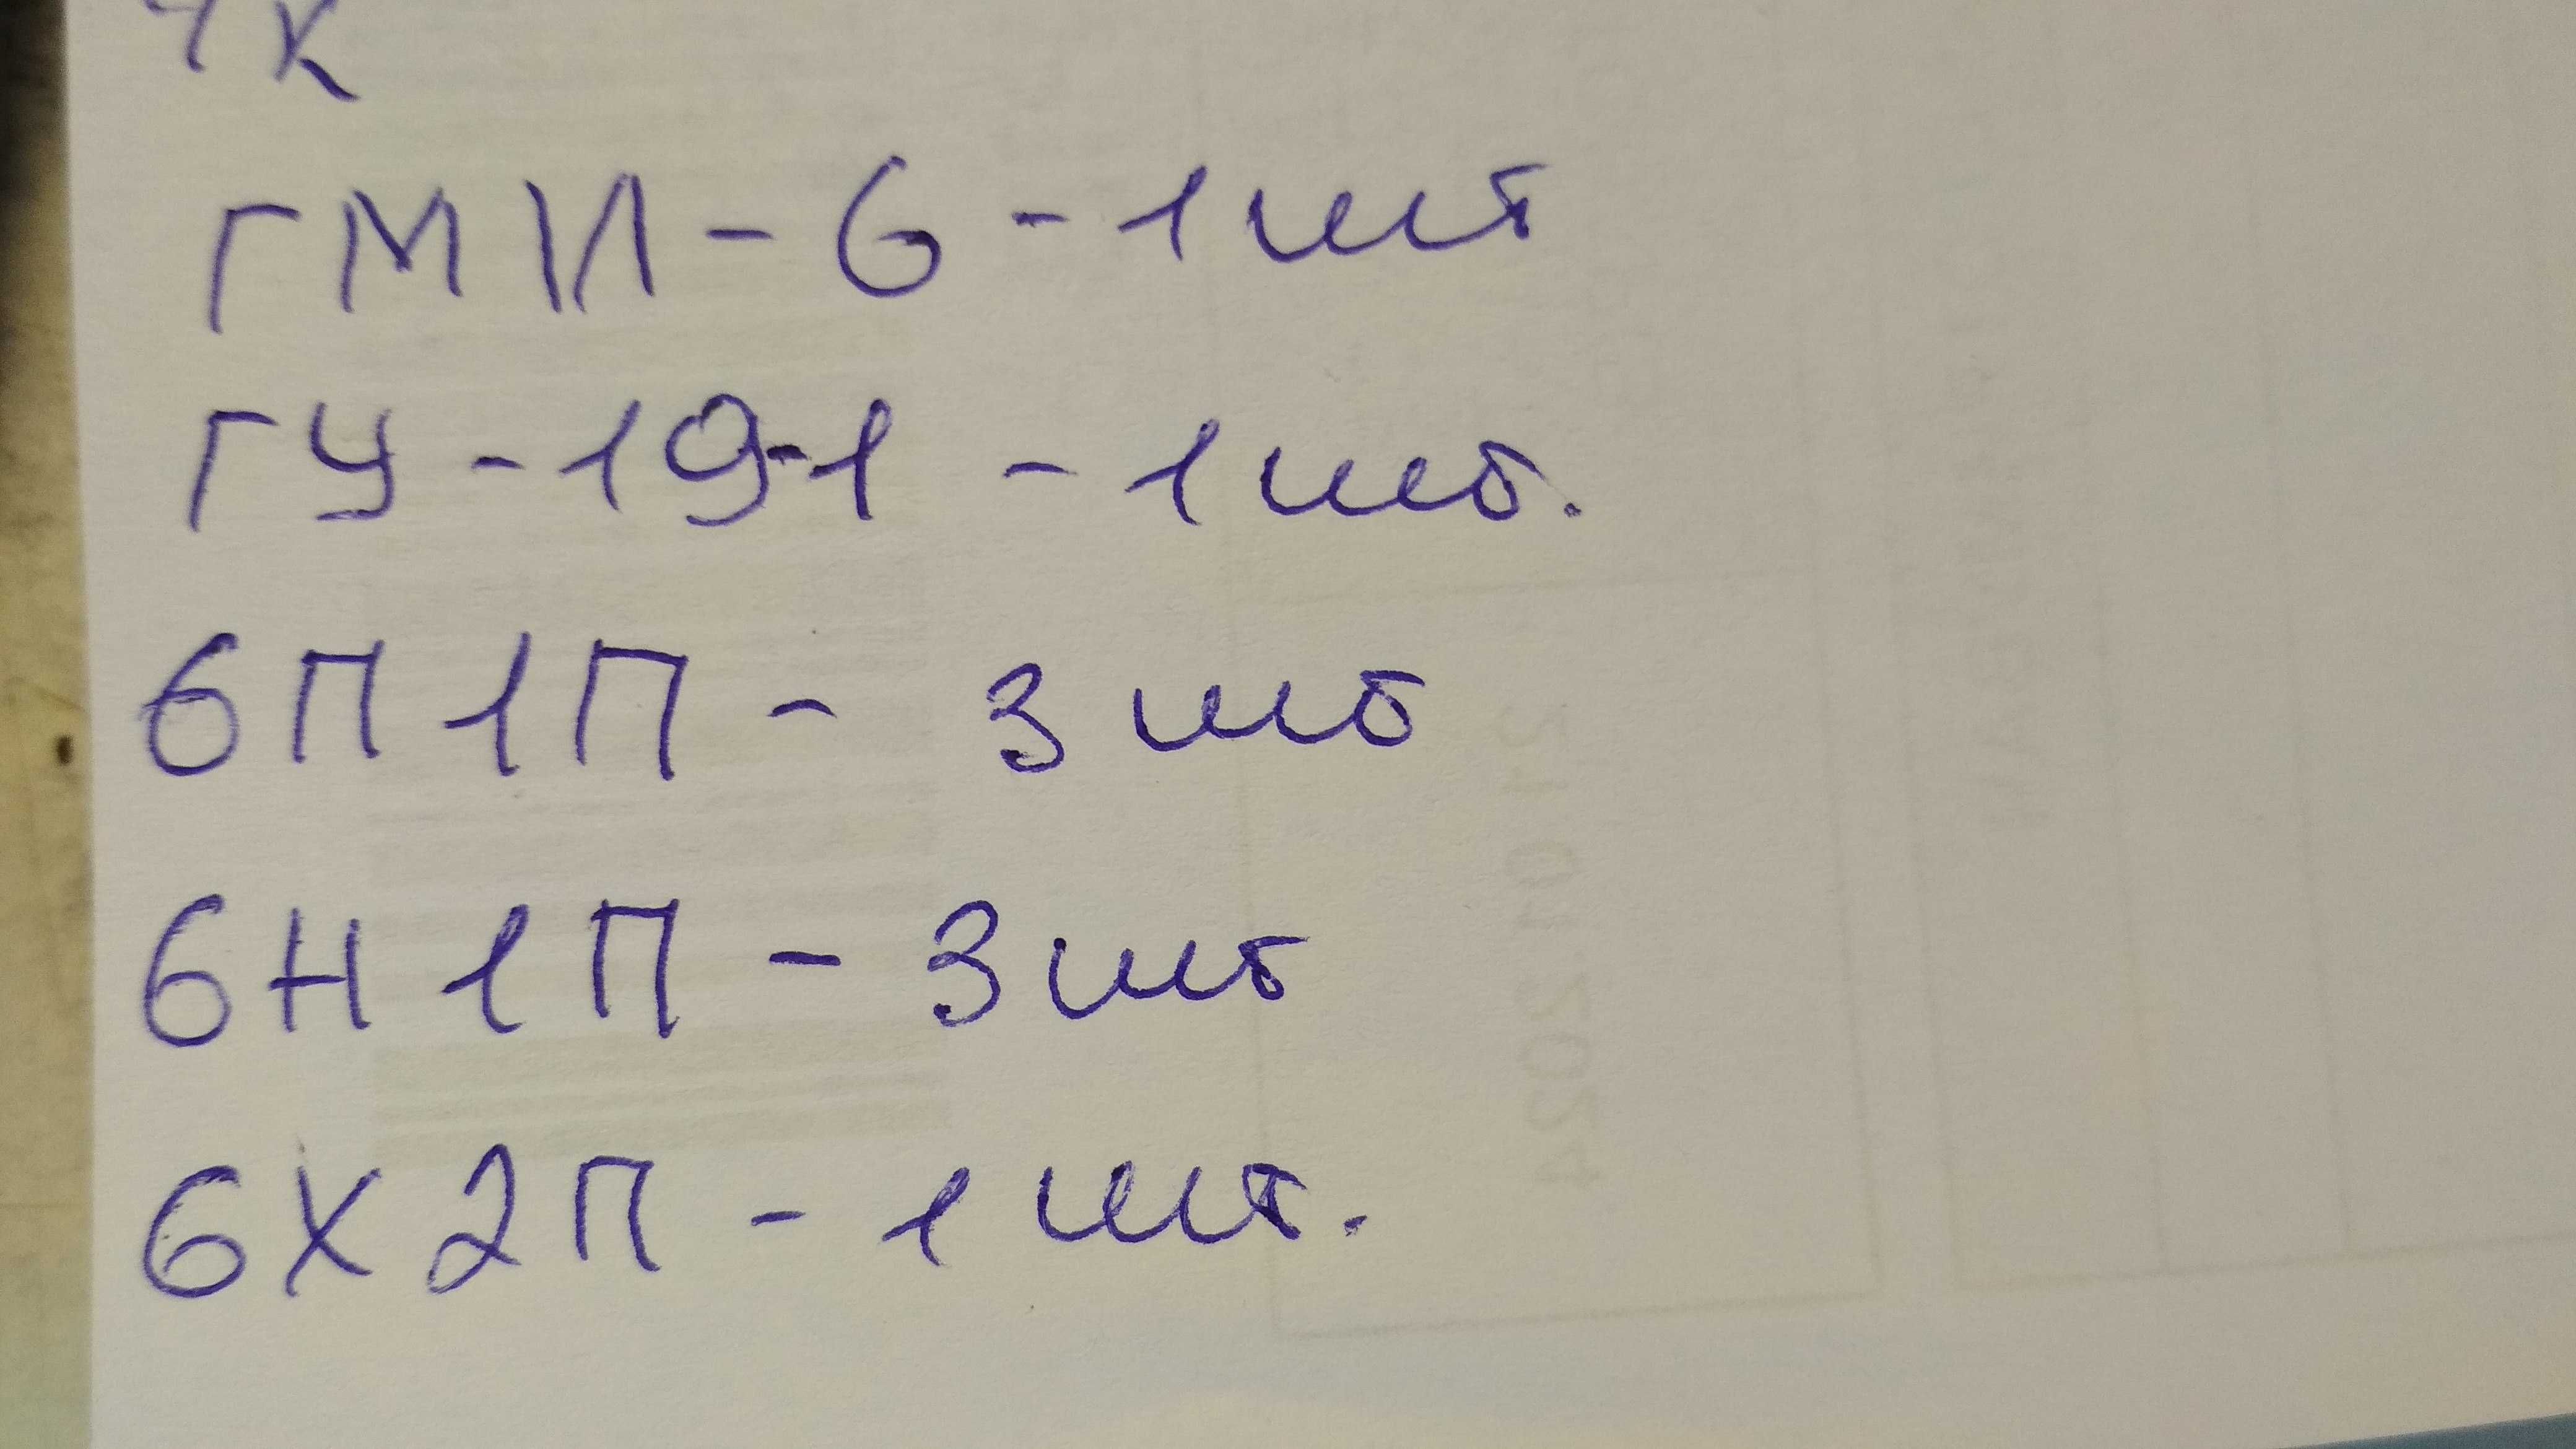 ГМИ-6 - 1 шт
ГУ-19-1 - 1 шт.
6П1П - 3 шт
6Н1П - 3 шт
6Х2П - 1 шт.